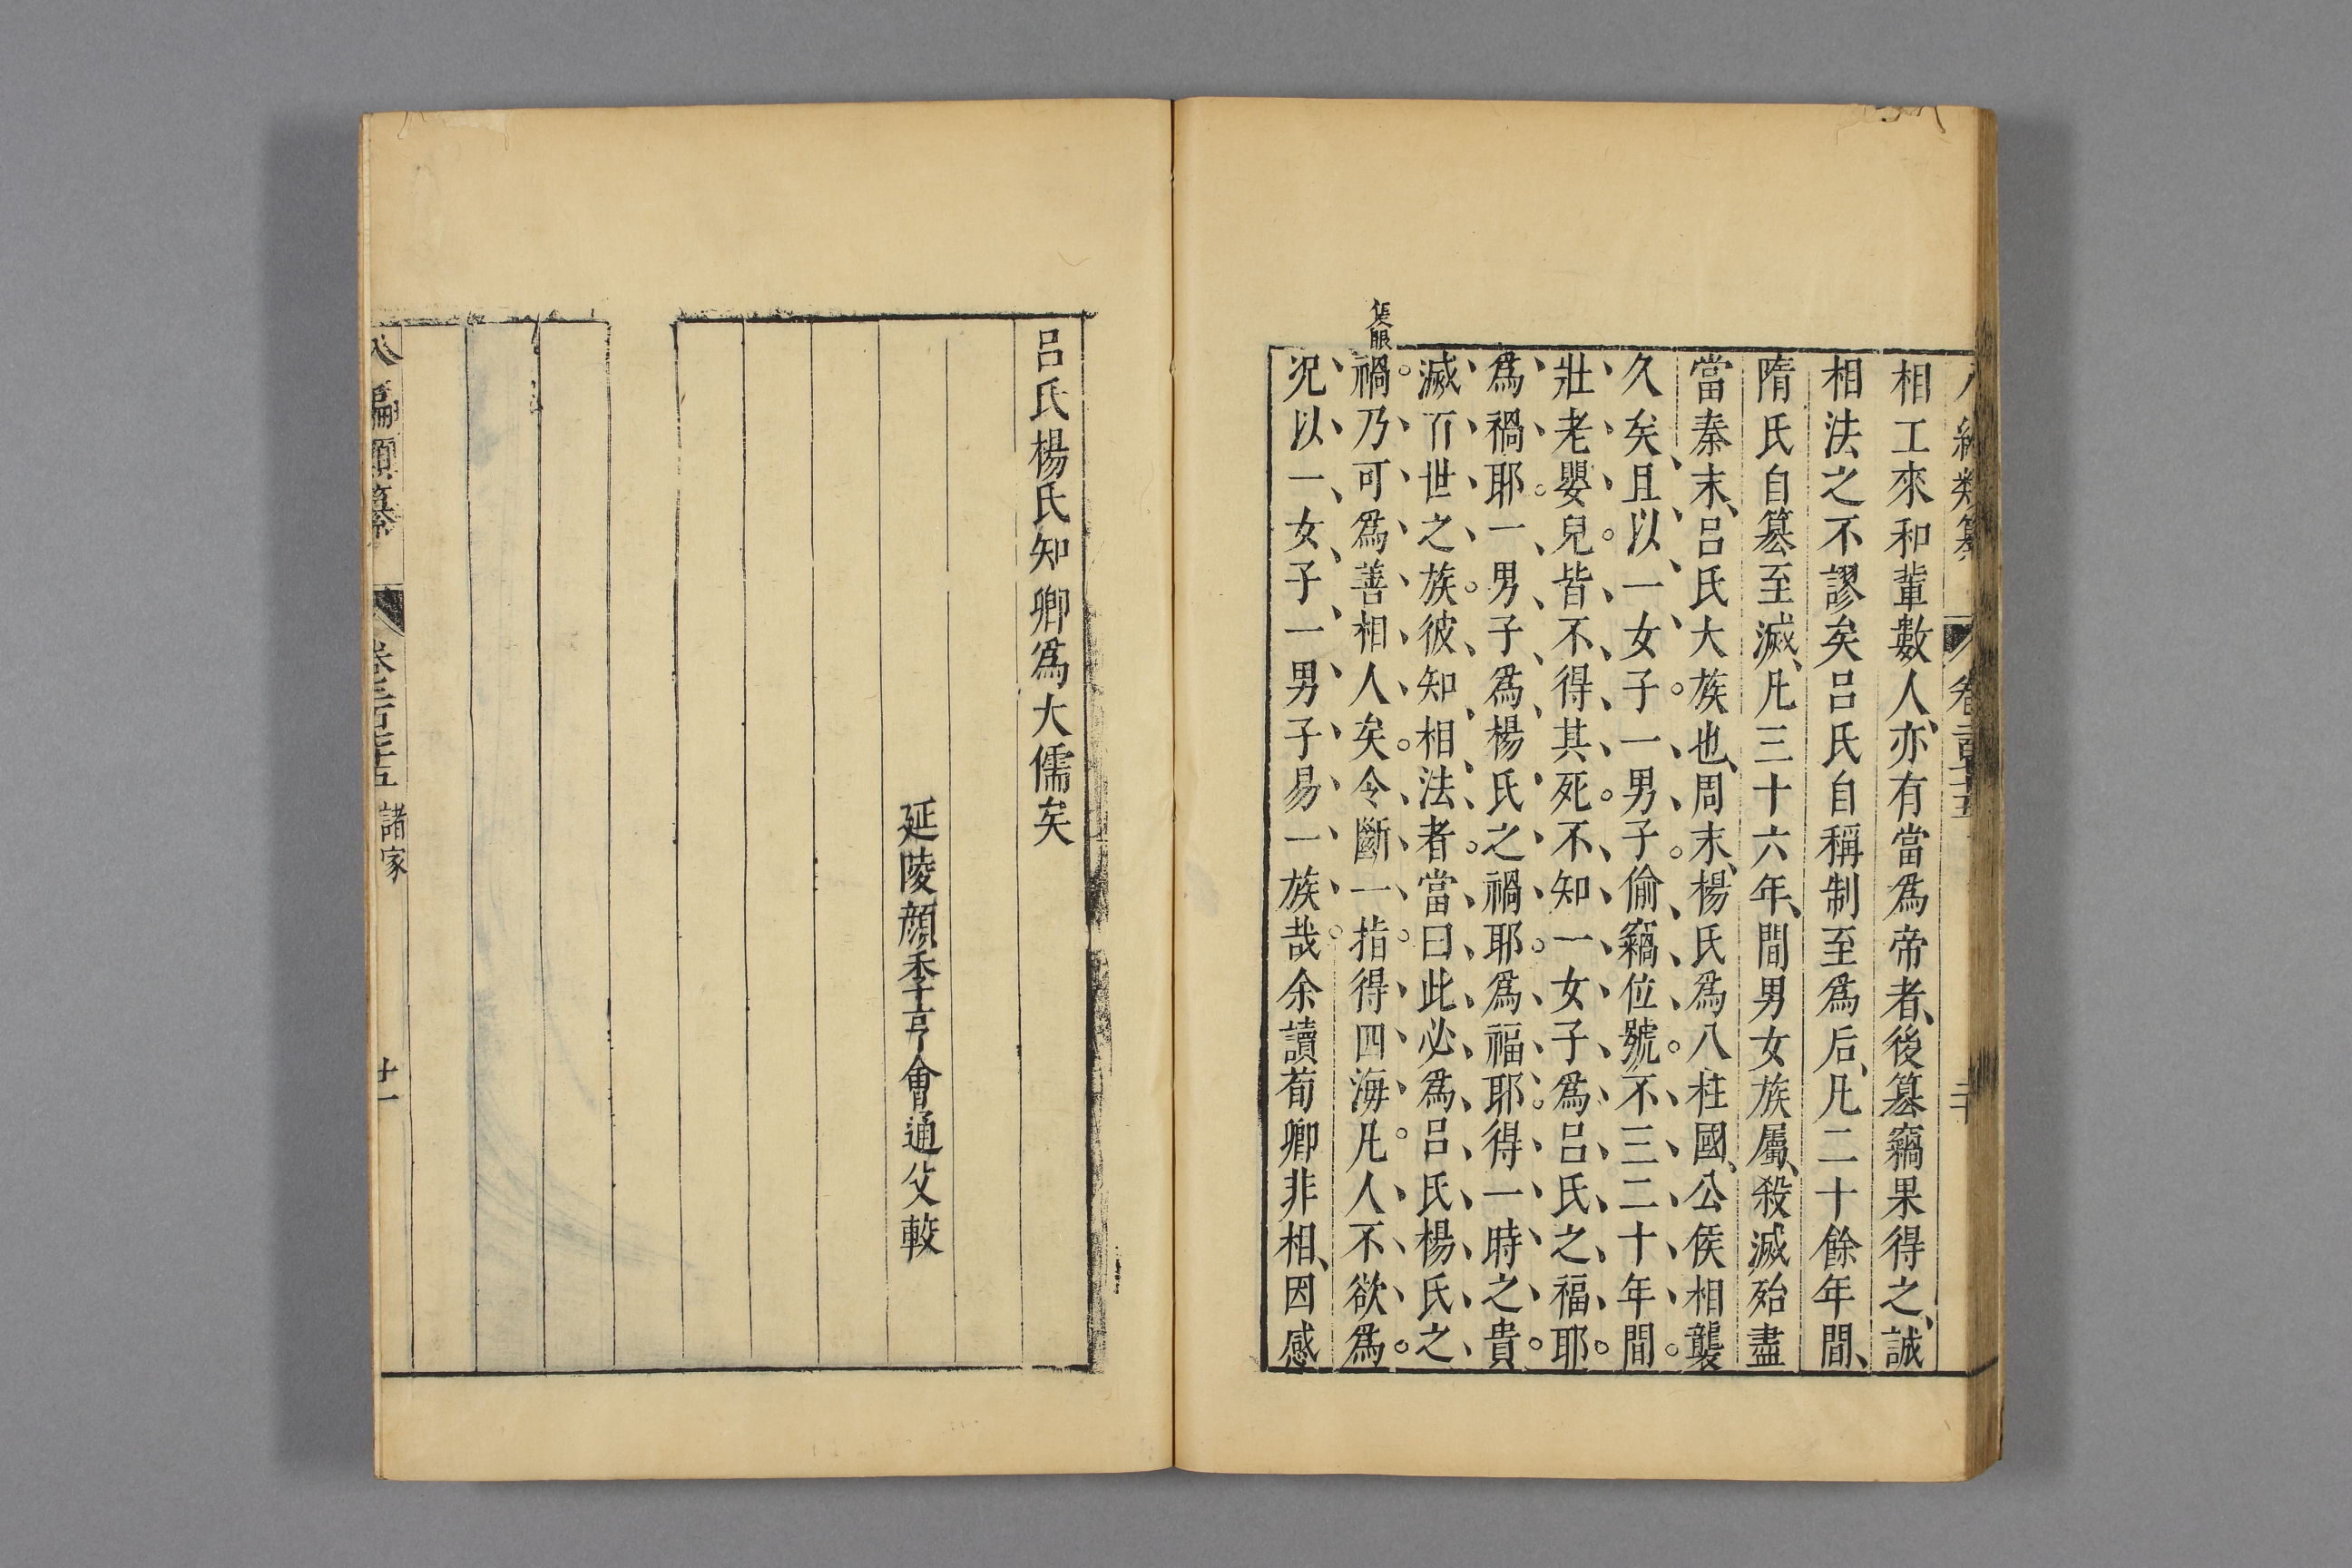 相工來和輩數人亦有當爲帝者後篡竊果得之誠
相法之不謬矣呂氏自稱制至爲后凡二十餘年間
隋氏自篡至滅凡三十六年間男女族屬殺滅殆盡
當秦末呂氏大族也周末楊氏爲八柱國公侯相襲
久矣且以一女子一男子偷竊位號不三二十年間
壯老嬰兒皆不得其死不知一女子爲呂氏之福耶
爲禍耶一男子爲楊氏之禍耶爲福耶得一時之貴
滅百世之族彼知相法者當曰此必爲呂氏楊氏之
禍乃可爲善相人矣令斷一指得四海凡人不欲爲
況以一女子一男子易一族哉余讀荀卿非相因感
呂氏楊氏知卿爲大儒矣
延陵顔季亨會通父較
八編類纂
諸家
廿一